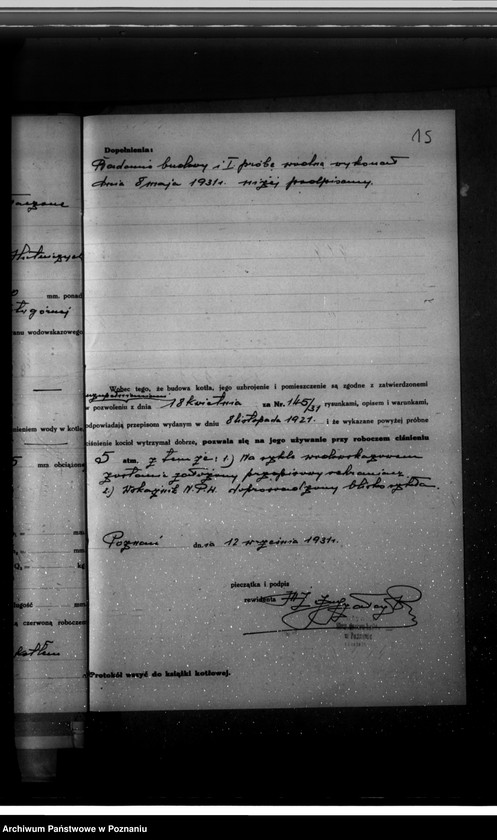 15
Dopełnienia:
Badanie budowy i I próbę wodną wykonał
dnia 8 maja 1931r. niżej podpisany.
mm. ponad
anu wodowskazowego
Wobec tego, że budowa kotła, jego uzbrojenie i pomieszczenie są zgodne z zatwierdzonemi
w pozwoleniu z dnia 18 kwietnia za Nr. 145/31 rysunkami, opisem i warunkami,
odpowiadają przepisom wydanym w dniu 8 listopada 1921. i że wykazane powyżej próbne
nieniem wody w kotle
ciśnienie kocioł wytrzymał dobrze, pozwala się na jego używanie przy roboczem ciśnieniu
5 atm. z tem że: 1) Na szkle wodowskazowem
zostanie założony przepisowy ochraniacz
2) Wskaźnik N.P.W. doprowadzony blisko szkła.
mm obciążone
Poznań dnia 12 września 1931r.
mm.
mm.
kg
pieczątka i podpis
rewidenta
ługość mm.
ą czerwoną roboczem
w Poznaniu
Protokół wszyć do książki kotłowej.
Archiwum Państwowe w Poznaniu